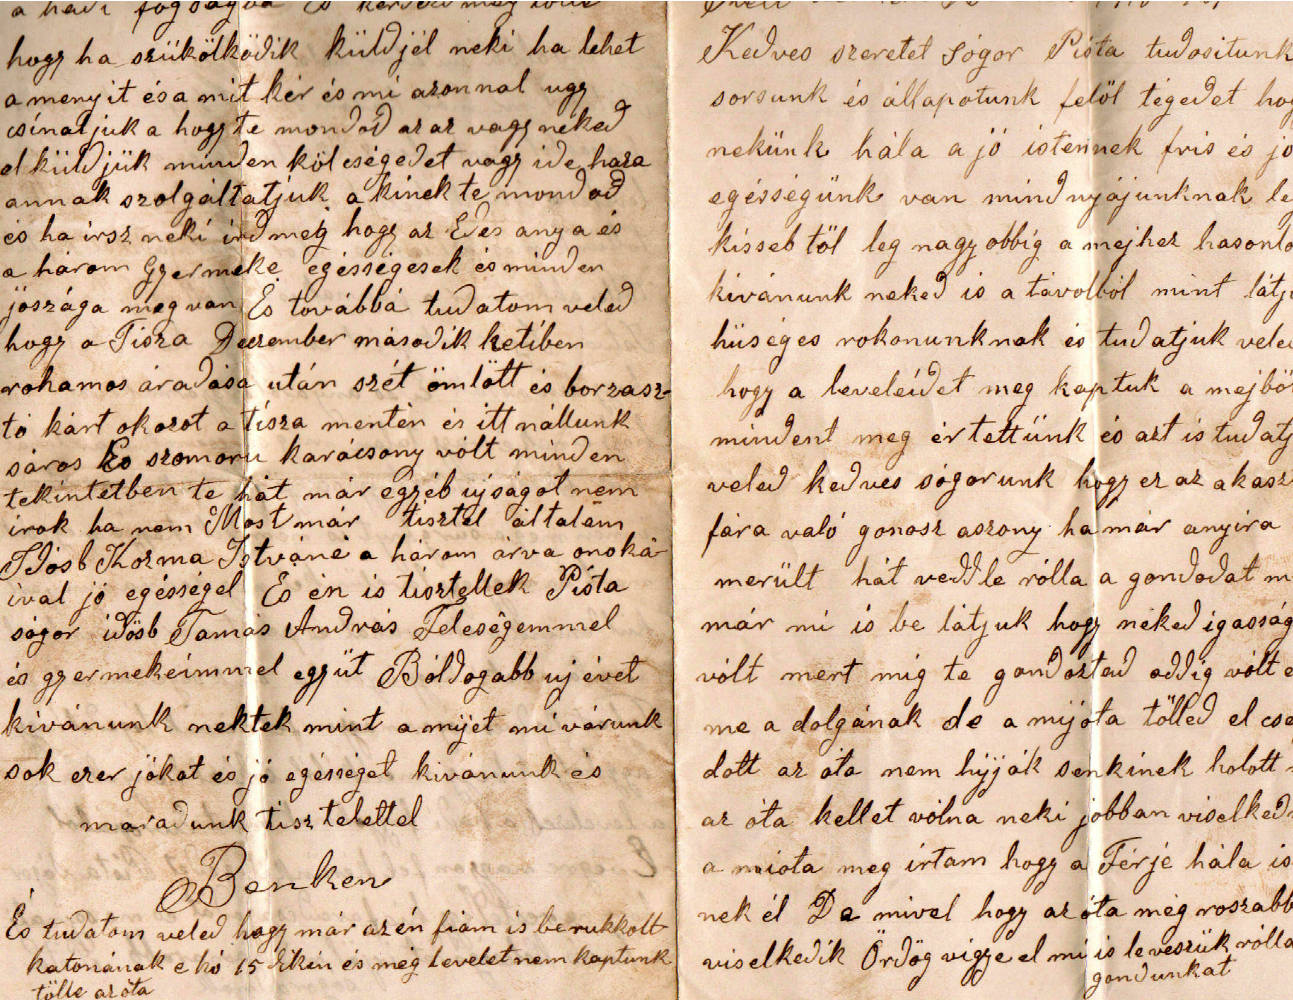 a hadi fogságba És kérded meg tőle
hogy ha szükölködik küldjél neki ha lehet
a menyit és a mit kér és mi azonnal ugy
csínatjuk a hogy te mondod az az vagy néked
el küldjük minden költségedet vagy ide haza
annak szolgáltatjuk a kinek te mondod
és ha irsz neki ird meg hogy az Édes anya és
a három Gyermeke egésségesek és minden
jószága meg van És továbbá tudatom veled
hogy a Tisza Deczember második hetiben
rohamos áradása után szét ömlött és borzasz-
tó kárt okozot a tisza mentén és itt nállunk
sáros És szomorú karácsony vólt minden
tekintetben te hát már egyéb ujságot nem
irok ha nem Most már tisztel általam
Idősb Kozma Istváné a három árva onoká-
ival jó egésségel És én is tisztellek Pista
sógor idősb Tamás András Feleségemmel
és gyermekeimmel együt Bóldogabb uj évet
kivánunk nektek mint a mijet mi várunk
sok ezer jókat és jó egésséget kivánunk és
maradunk tisztelettel
Benken
És tudatom veled hogy már az én fiam is be rukkolt
katonának e hó 15 dikén és még levelet nem kaptunk
tölle az óta
Kedves szeretet Sógor Pista tudositunk
sorsunk és állapotunk felöl tégedet hogy
nekünk hála a jó istennek fris és jó
egésségünk van mindnyájunknak leg
kissebtöl leg nagyobbig a mejhez hasonló
kivánunk neked is a távolból mint
hüséges rokonunknak és tudatjuk veled
hogy a leveleidet meg kaptuk a mejböl
mindent meg értettünk és azt is
veled kedves sógorunk hogy ez az akasz
fára való gonosz aszony ha már anyira
merült hát vedd le rólla a gondodat
már mi is be látjuk hogy neked igasság
vólt mert mig te gondoztad addig vólt
me a dolgának de a mijóta tölled el
dott az óta nem hijják senkinek holott
az óta kellet vólna neki jobban
a mióta meg irtam hogy a Férjé hála is
nek él De mivel hogy az óta még roszabb
viselkedik Ördög vigye el mi is leveszük rólla
gondunkat